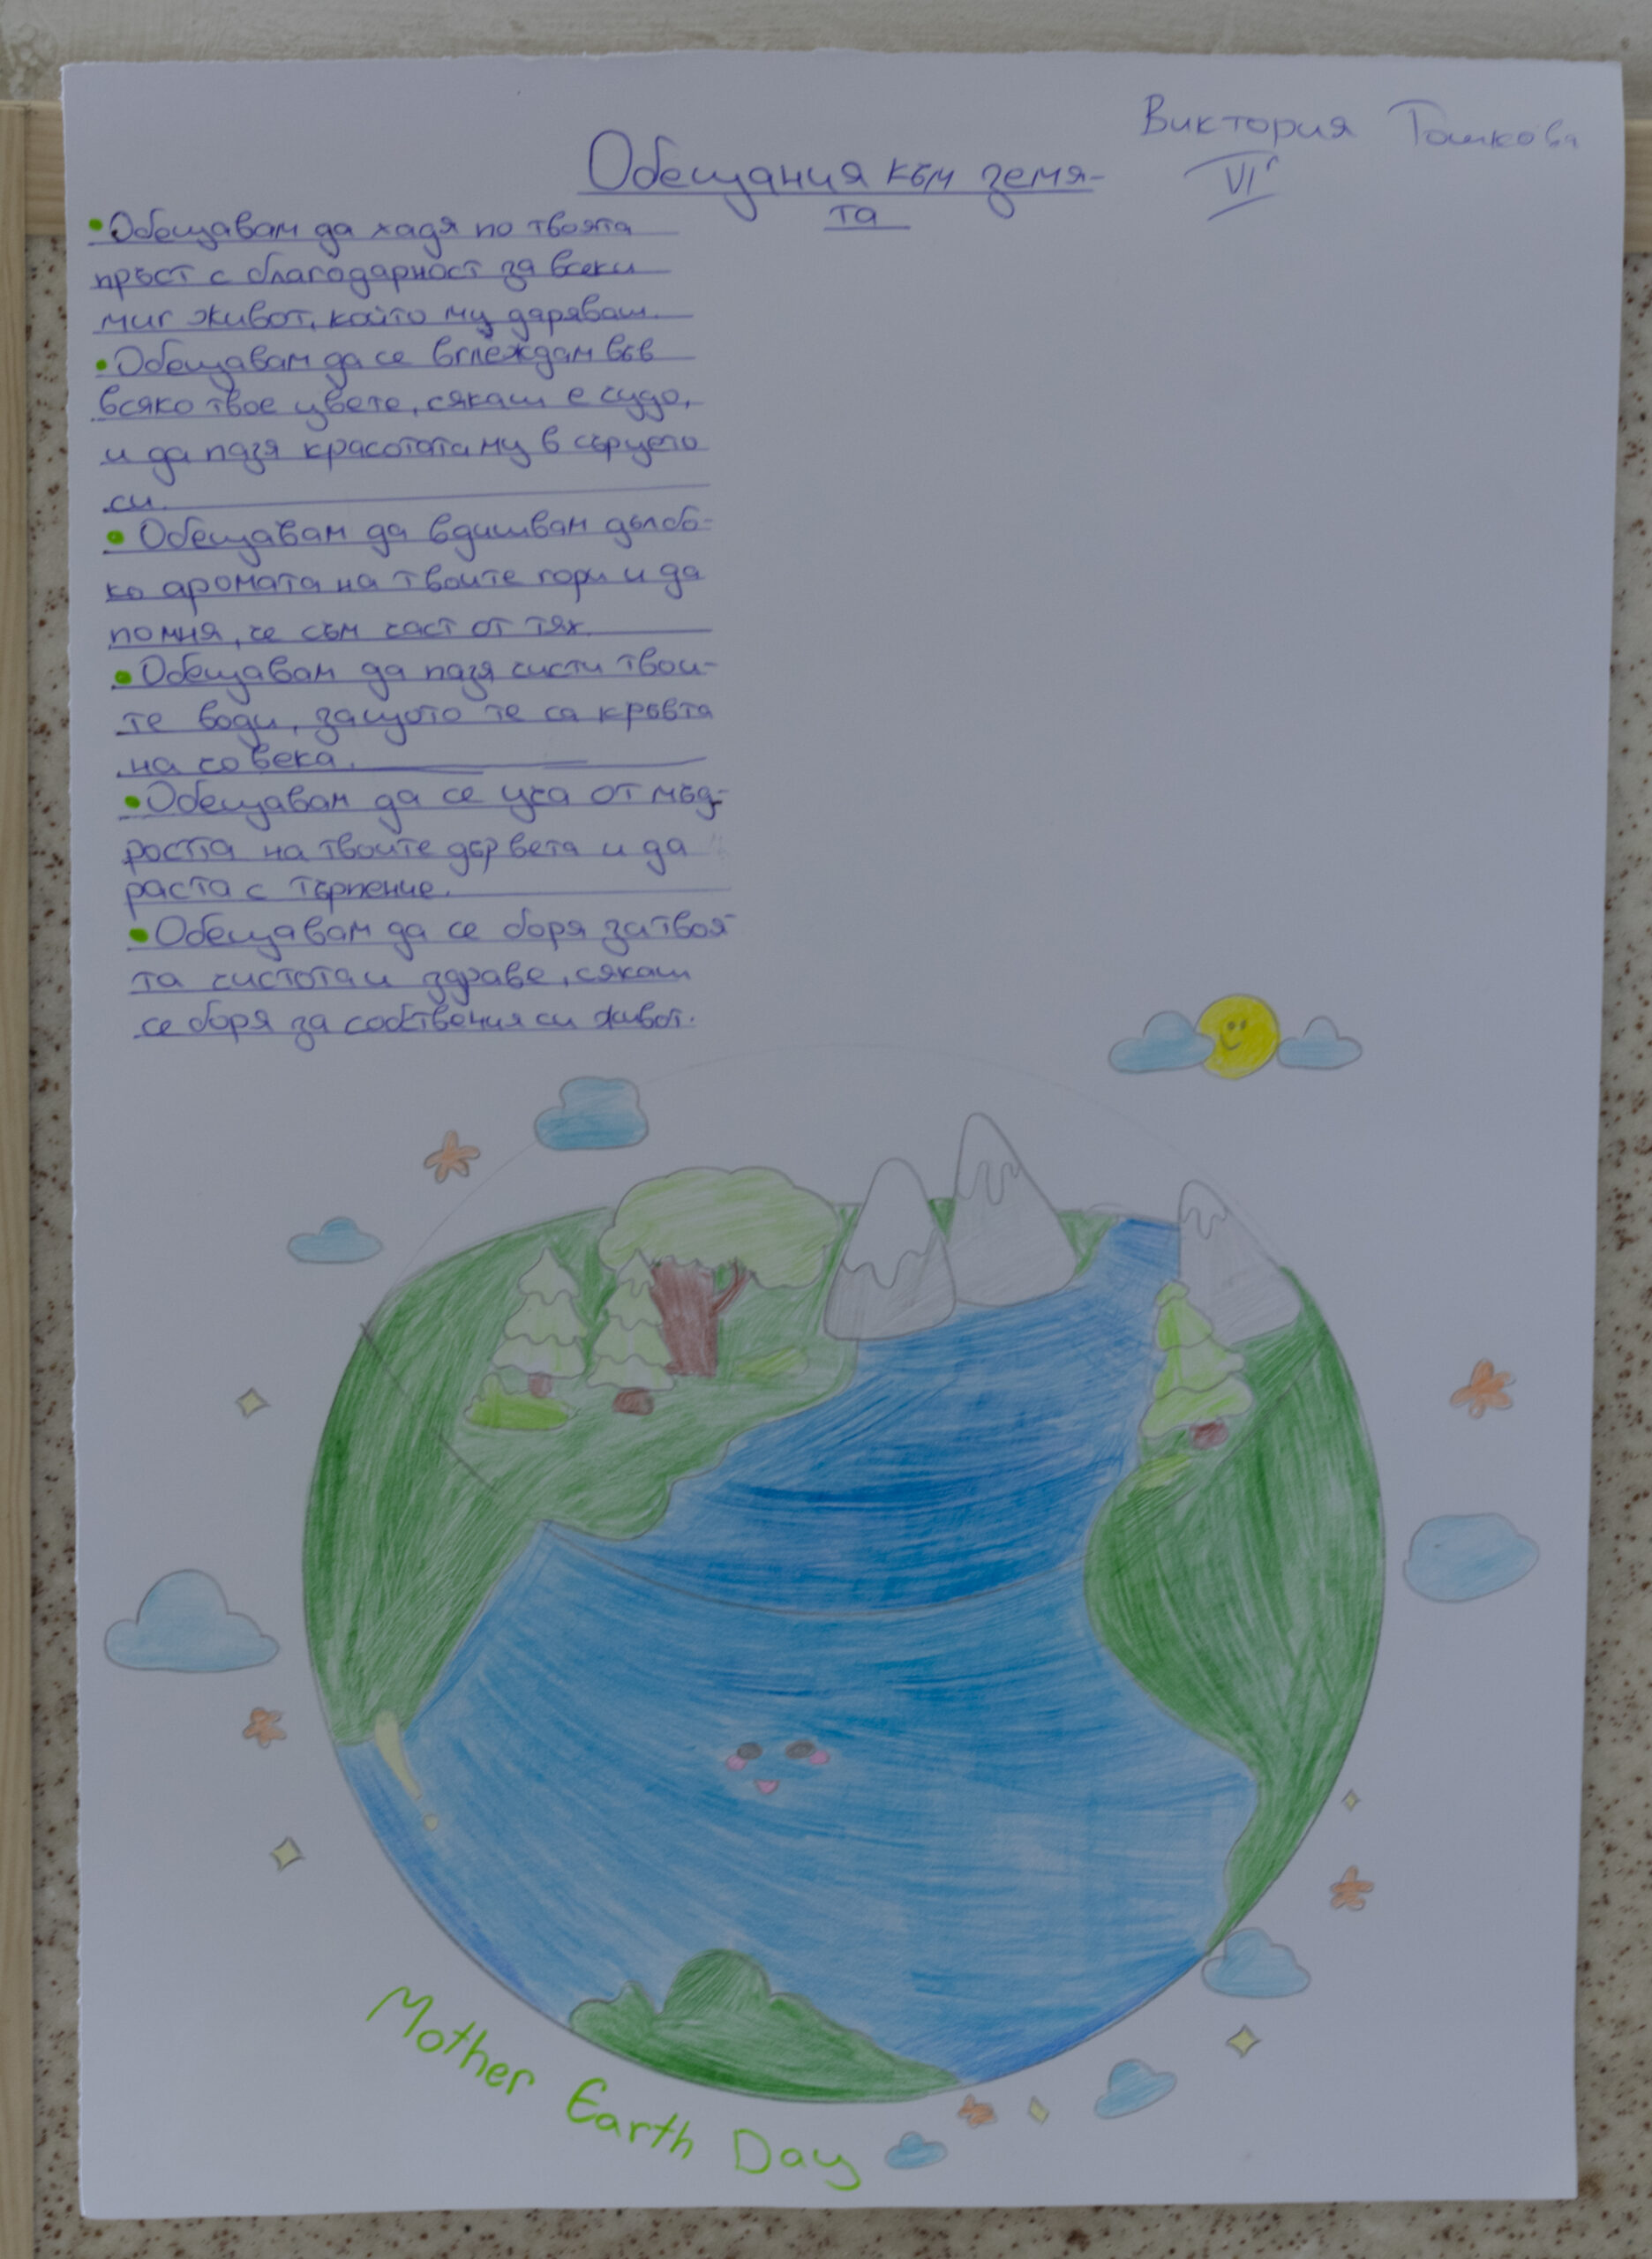 Виктория Тошкова
VI г
Обещания към земя-
та
• Обещавам да хадя по твоята
пръст с благодарност за всеки
миг живот, който му даряваш.
• Обещавам да се вглеждам във
всяко твое цвете, сякаш е чудо,
и да пазя красотата му в сърцето
си.
• Обещавам да вдишвам дълбо-
ко аромата на твоите гори и да
помня, че съм част от тях.
• Обещавам да пазя чисти твои-
те води, защото те са кръвта
на човека.
• Обещавам да се уча от мъд-
ростта на твоите дървета и да
раста с търпение.
• Обещавам да се боря за твоя-
та чистота и здраве, сякаш
се боря за собствения си живот.
Mother Earth Day